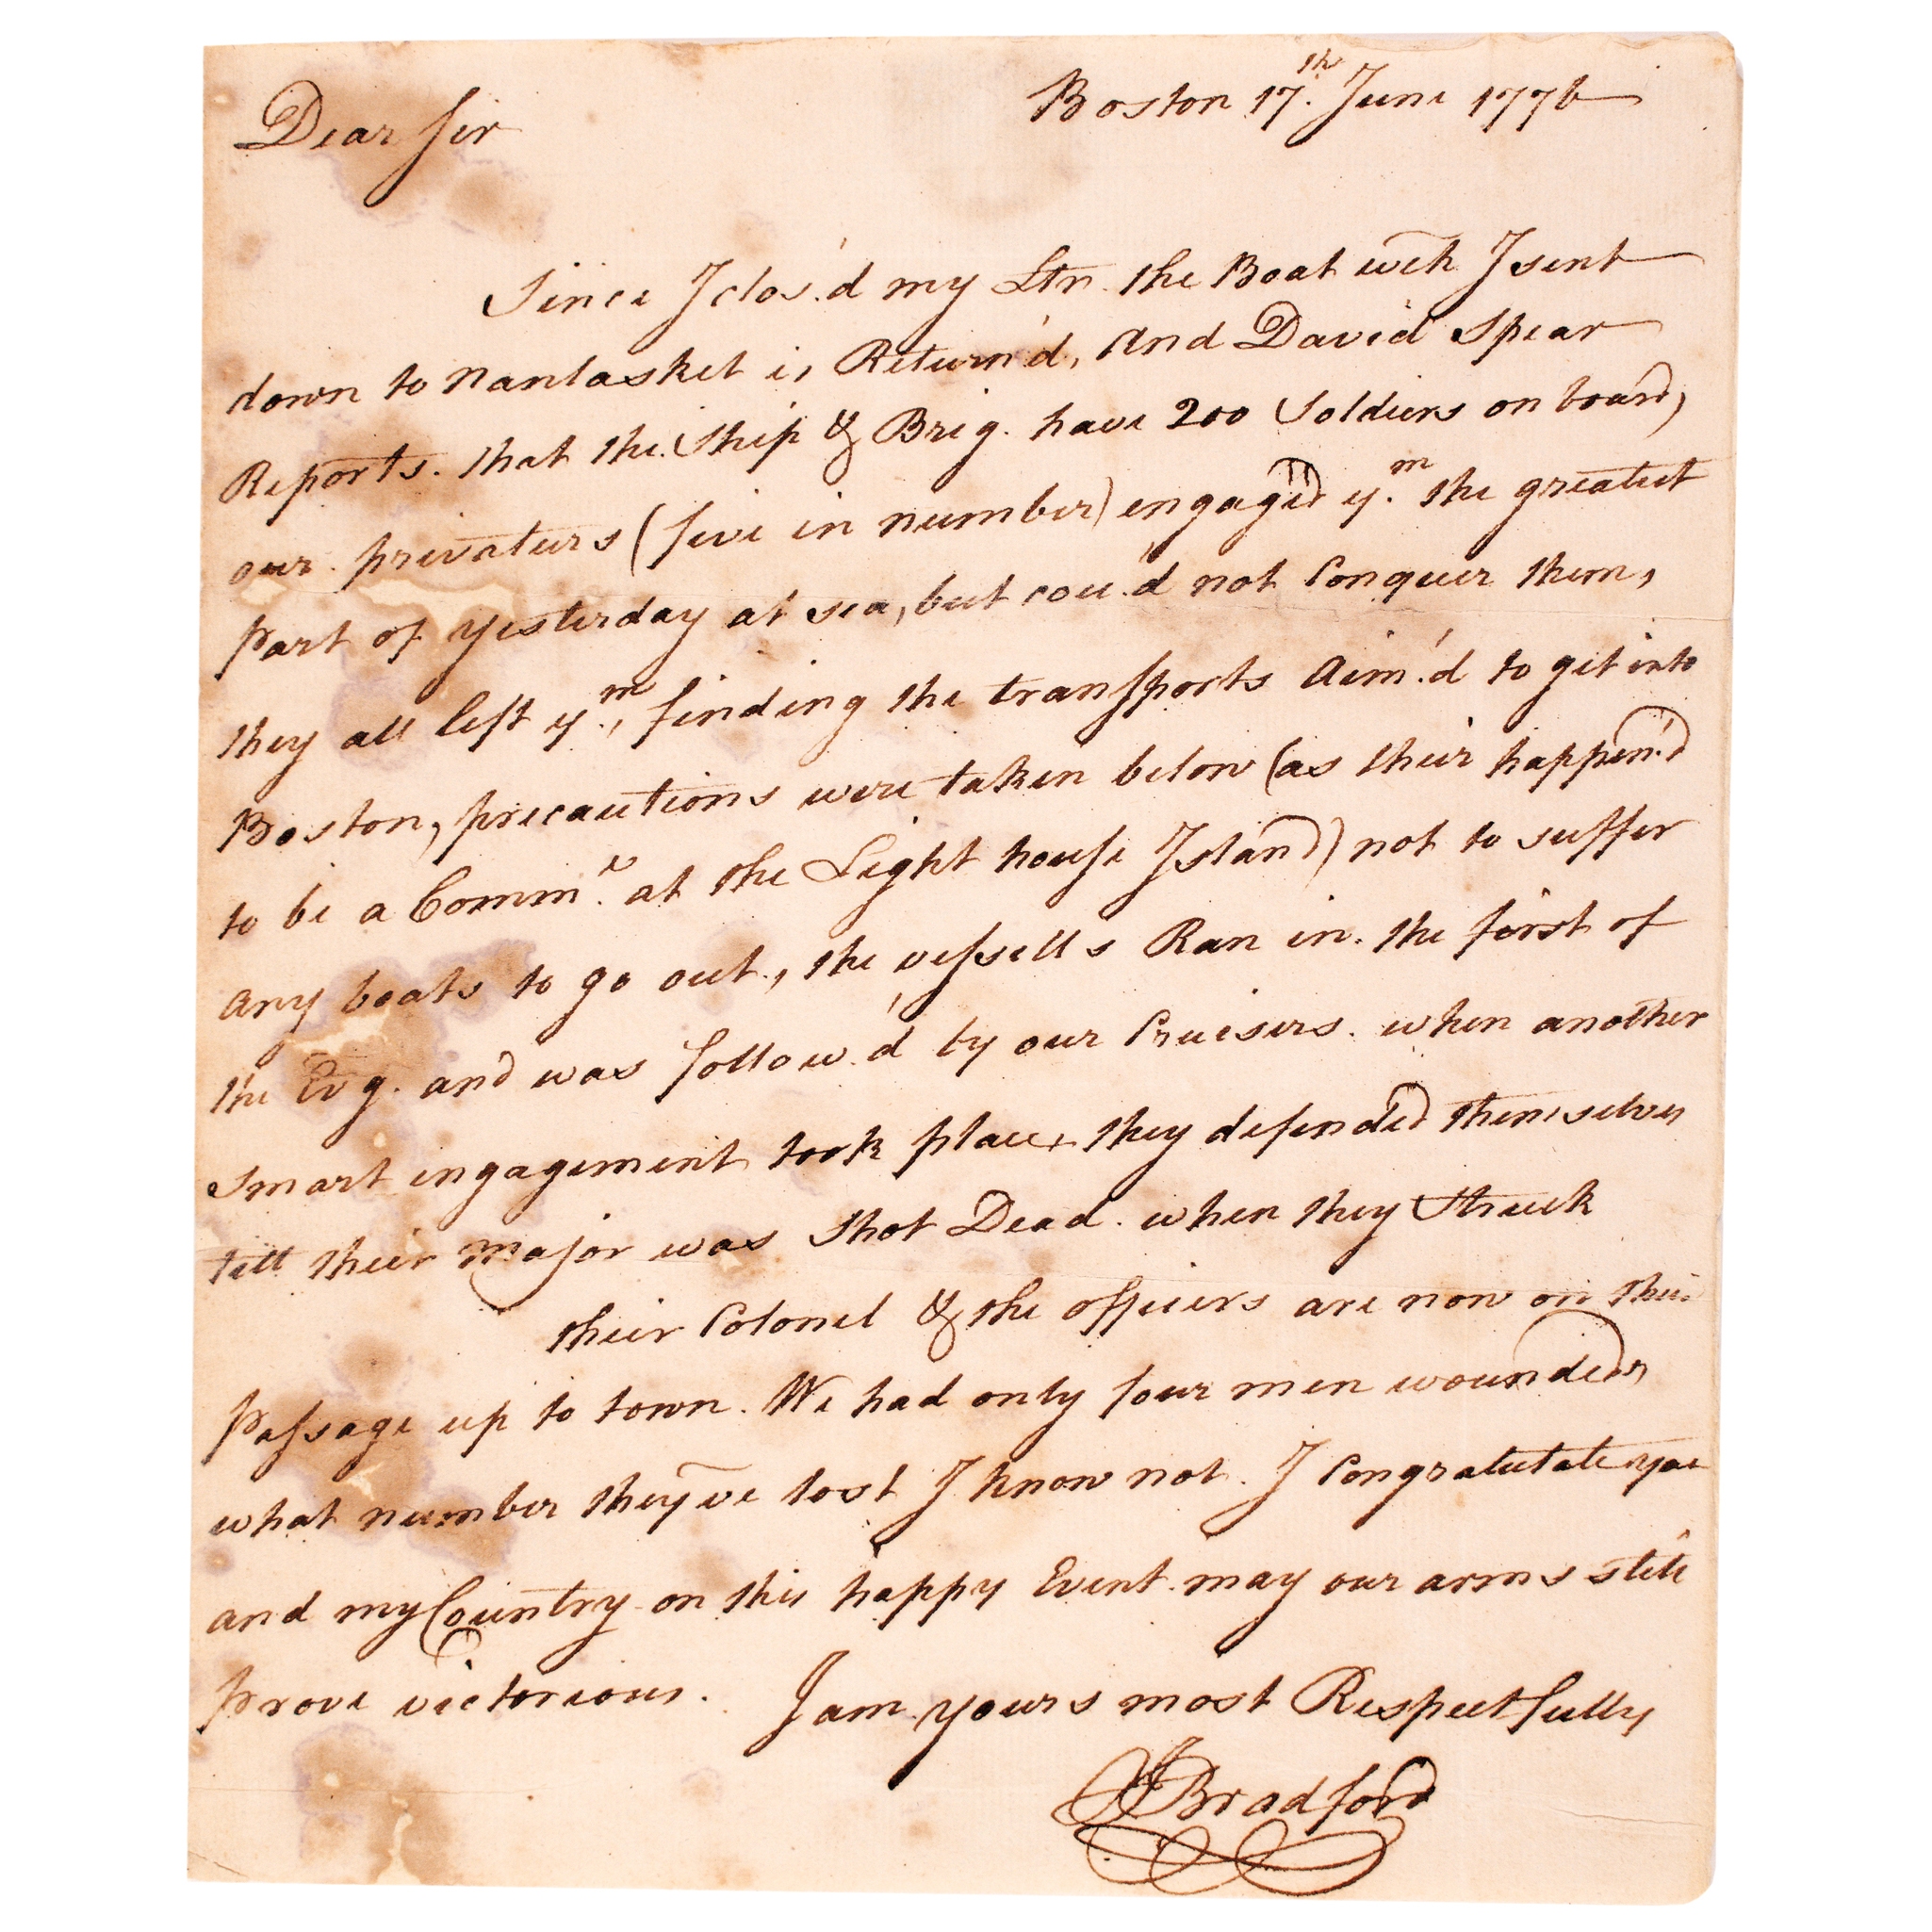 Boston 17.th June 1776
Dear Sir
Since I clos'd my Ltr. the Boat wch I sent
down to Nantasket is Return'd, And David Spear
Reports. that the Ship & Brig. have 200 Soldiers on board,
our privateers (five in number) engaged y.m the greatest
part of yesterday at sea, but cou'd not Conquer them,
they all left y.m, finding the transports Aim'd to get into
Boston, precautions were taken below (as their happen'd
to be a Comm.e at the Light house Island) not to suffer
any boats to go out, the vessells Ran in. the first of
the Ev'g. and was follow'd by our Cruisers. when another
smart ingagement took place, they defended themselves
till their Major was Shot Dead. when they Struck
their Colonel & the officers are now on their
Passage up to town. We had only four men wounded,
what number they've lost I know not. I Congratulate you
and my Country on this happy Event. may our arms still
prove victorious. I am yours most Respectfully
J Bradford